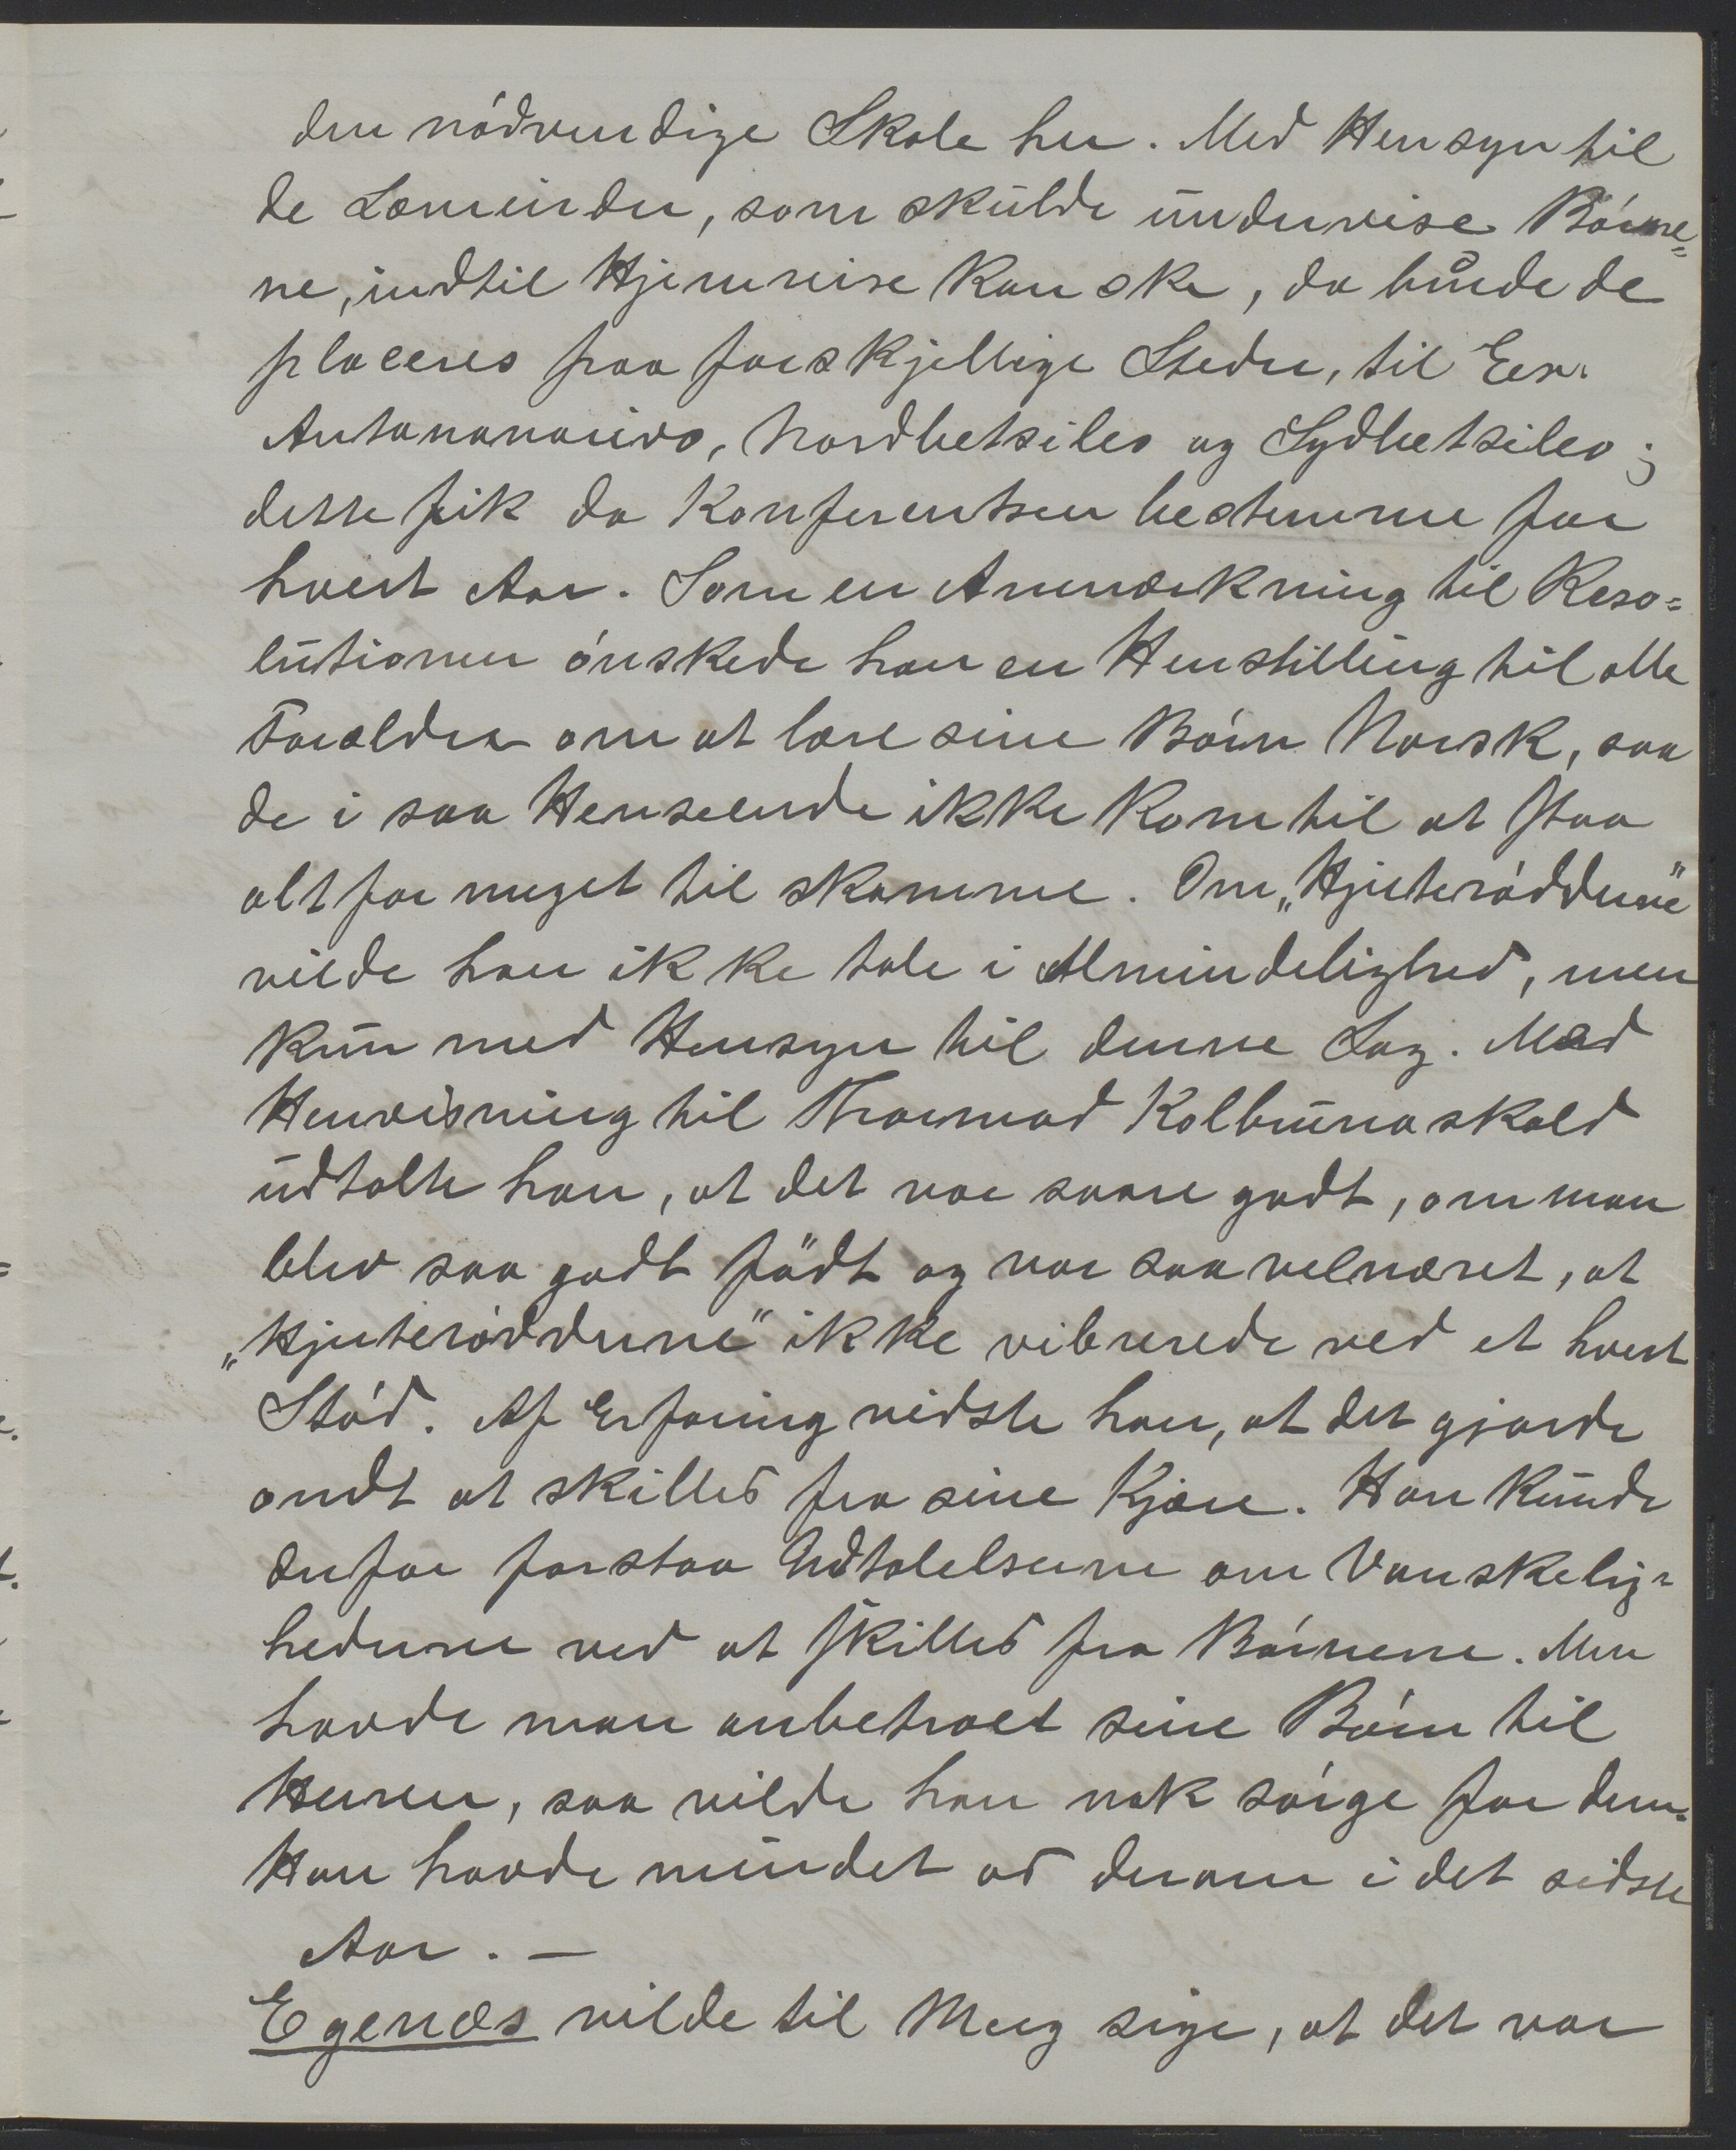 den nödvendige Skole her. Med Hensyn til
de Lærerinder, som skulde undervise Börne=
ne, indtil Hjemreise kan ske, da burde de
placeres paa forskjellige Steder, til Ex.
Antananarivo, Nordbetsileo og Sydbetsileo;
dette fik da Konferentsen bestemme for
hvert Aar. Som en Anmærkning til Reso=
lutionen önskede han en Henstilling til alle
Forældre om at lære sine Börn Norsk, saa
de i saa Henseende ikke kom til at staa
alt for meget til skamme. Om „Hjerterödderne"
vilde han ikke tale i Almindelighed, men
kun med Hensyn til denne Sag. Med
Henvisning til Thormod Kolbrunaskald
udtalte han, at det var saare godt, om man
blev saa godt födt og var saa velnæret, at
„Hjerterödderne" ikke vibrerede ved et hvert
Stöd. Af Erfaring vidste han, at det gjorde
ondt at skilles fra sine Kjære. Han kunde
derfor forstaa Udtalelserne om Vanskelig=
hederne ved at skilles fra Börnene. Men
havde man anbetroet sine Börn til
Herren, saa vilde han nok sörge for dem.
Han havde mindet os derom i det sidste
Aar. —
Egenæs vilde til Meeg sige, at det var